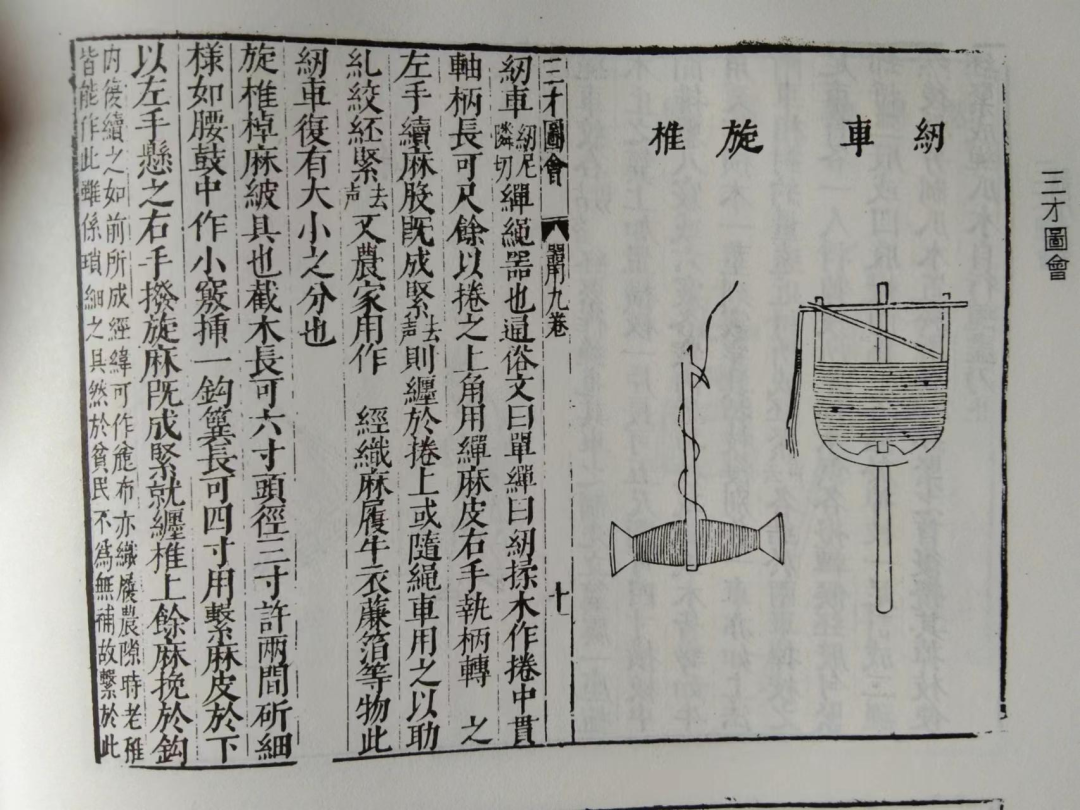 三才圖會
紉車 旋椎
三才圖會 器用九卷 十
紉車紉尼隣切繟繩器也通俗文曰單繟曰紉揉木作捲中貫
軸柄長可尺餘以捲之上角用繟麻皮右手執柄轉 之
左手續麻股旣成緊去聲則纏於捲上或隨繩車用之以助
糺絞緊去聲又農家用作 經織麻履牛衣簾箔等物此
紉車復有大小之分也
旋椎掉麻紴具也截木長可六寸頭徑三寸許兩間斫細
樣如腰鼓中作小竅揷一鈎簨長可四寸用繫麻皮於下
以左手懸之右手撥旋麻旣成緊就纏椎上餘麻挽於鈎
内復續之如前所成經緯可作麁布亦織履農隙時老稚
皆能作此雖係瑣細之具然於貧民不爲無補故繫於此